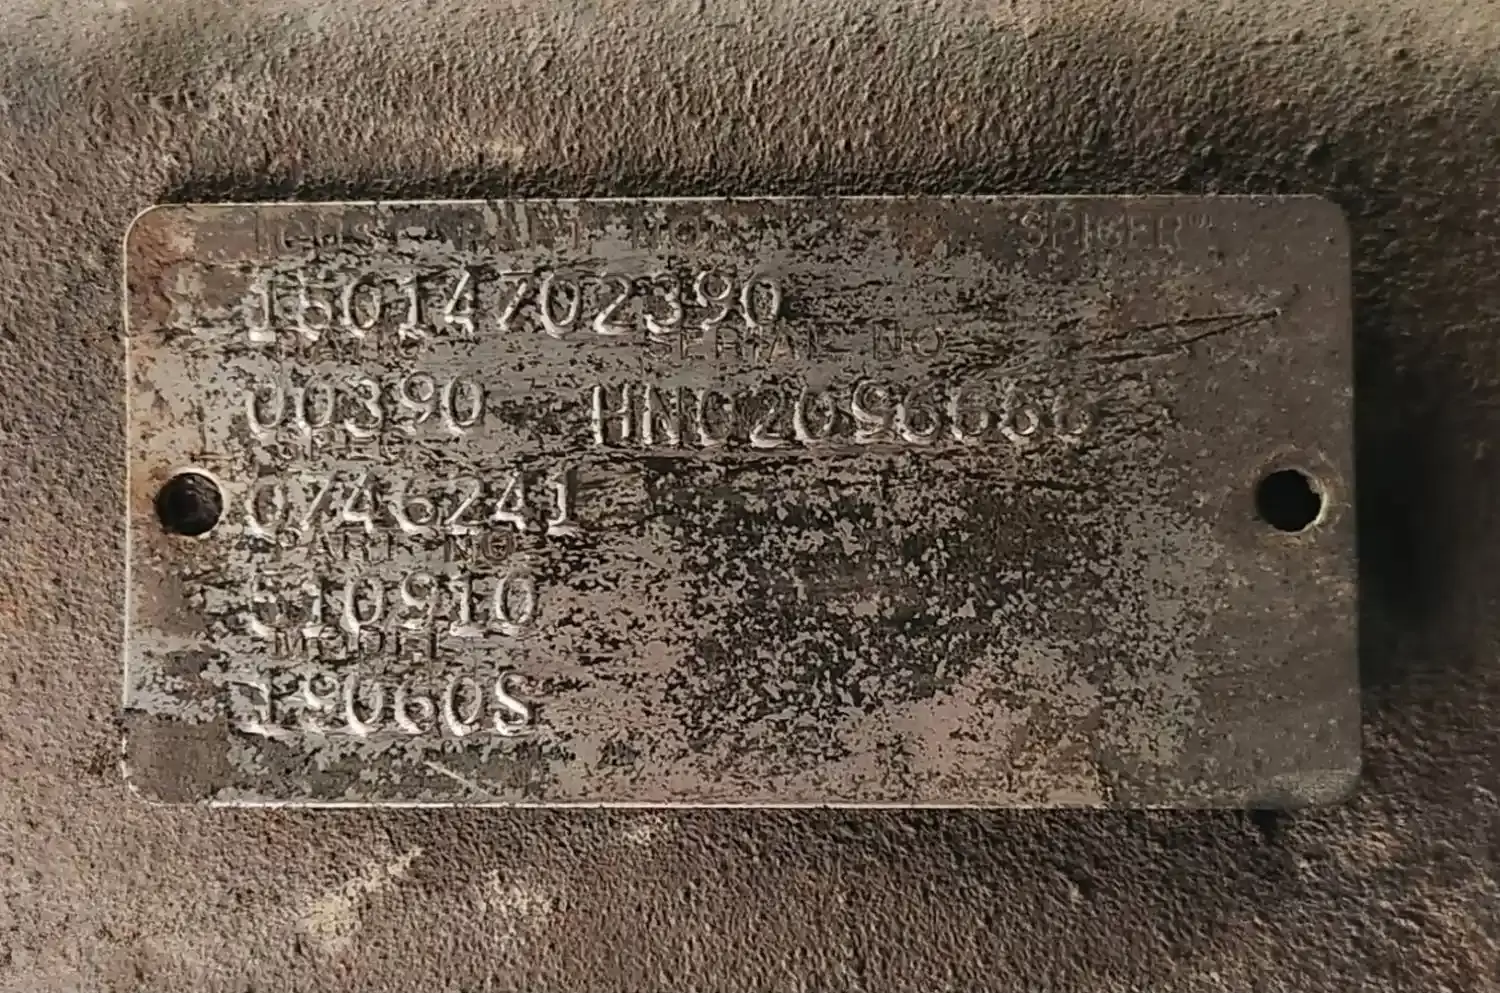 CUST PART NO SPICER®
15014702390
RATIO SERIAL NO
00390 HN02096666
SPEC
0746241
PART NO
510910
MODEL
J9060S